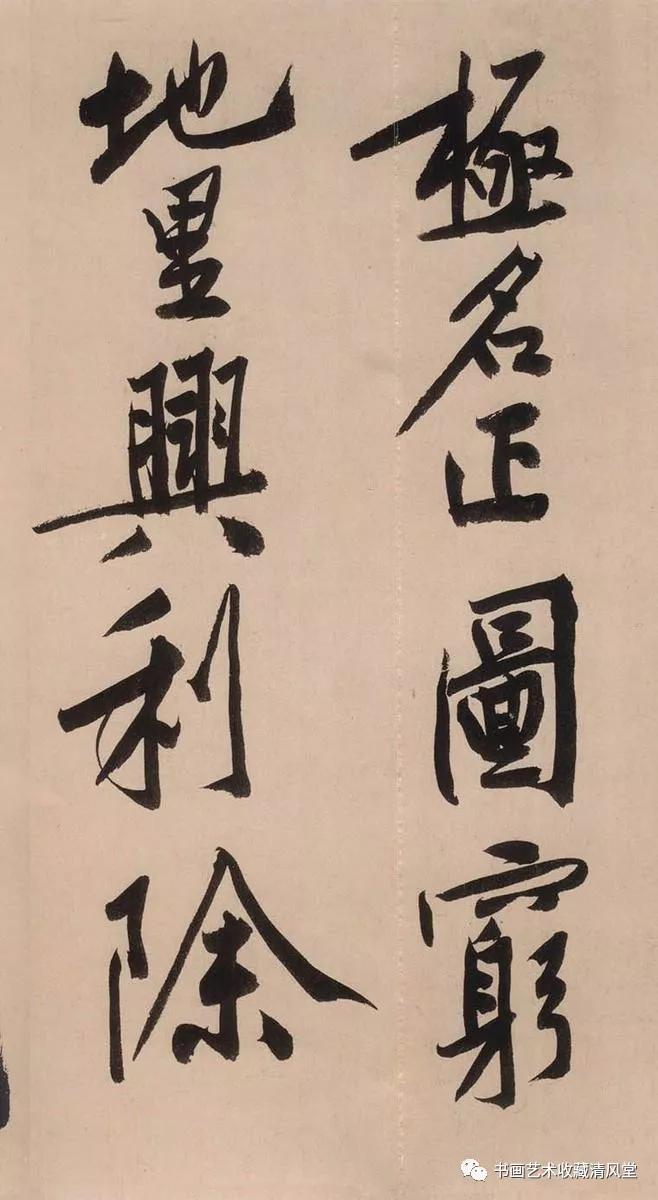 極名正圖窮
地里興利除
书画艺术收藏清风堂